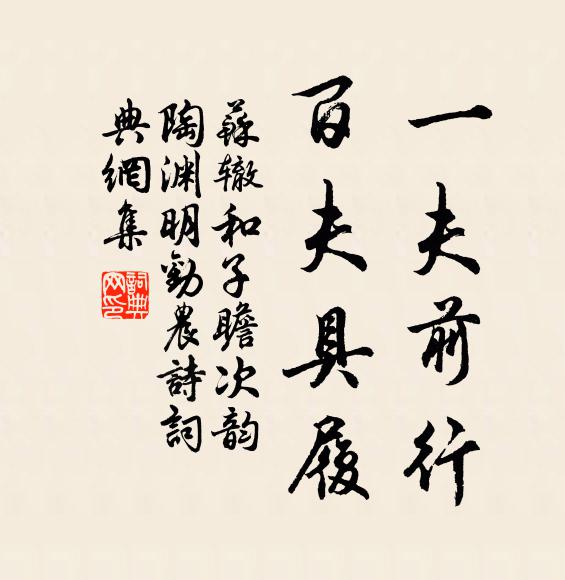 一夫前行
百夫具履
蘇辙和子瞻次韵
陶渊明勸農詩詞
典網集
詞典
网印